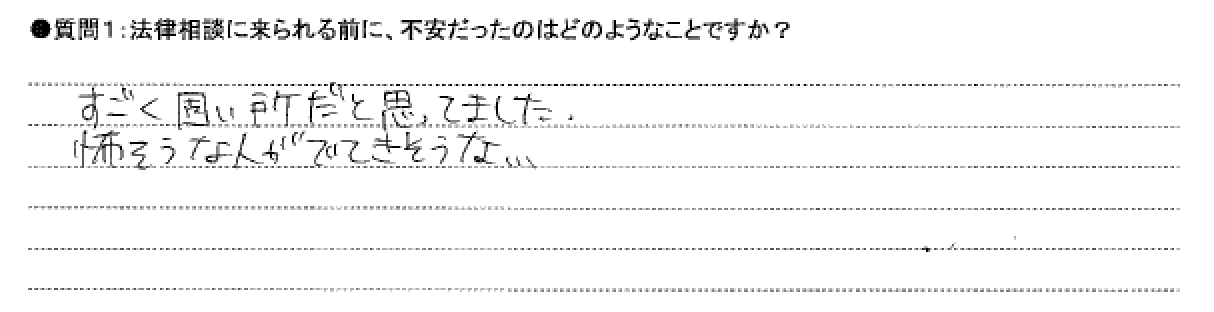 ●質問1:法律相談に来られる前に、不安だったのはどのようなことですか?
すごく固い所だと思ってました.
怖そうな人がでてきそうな...